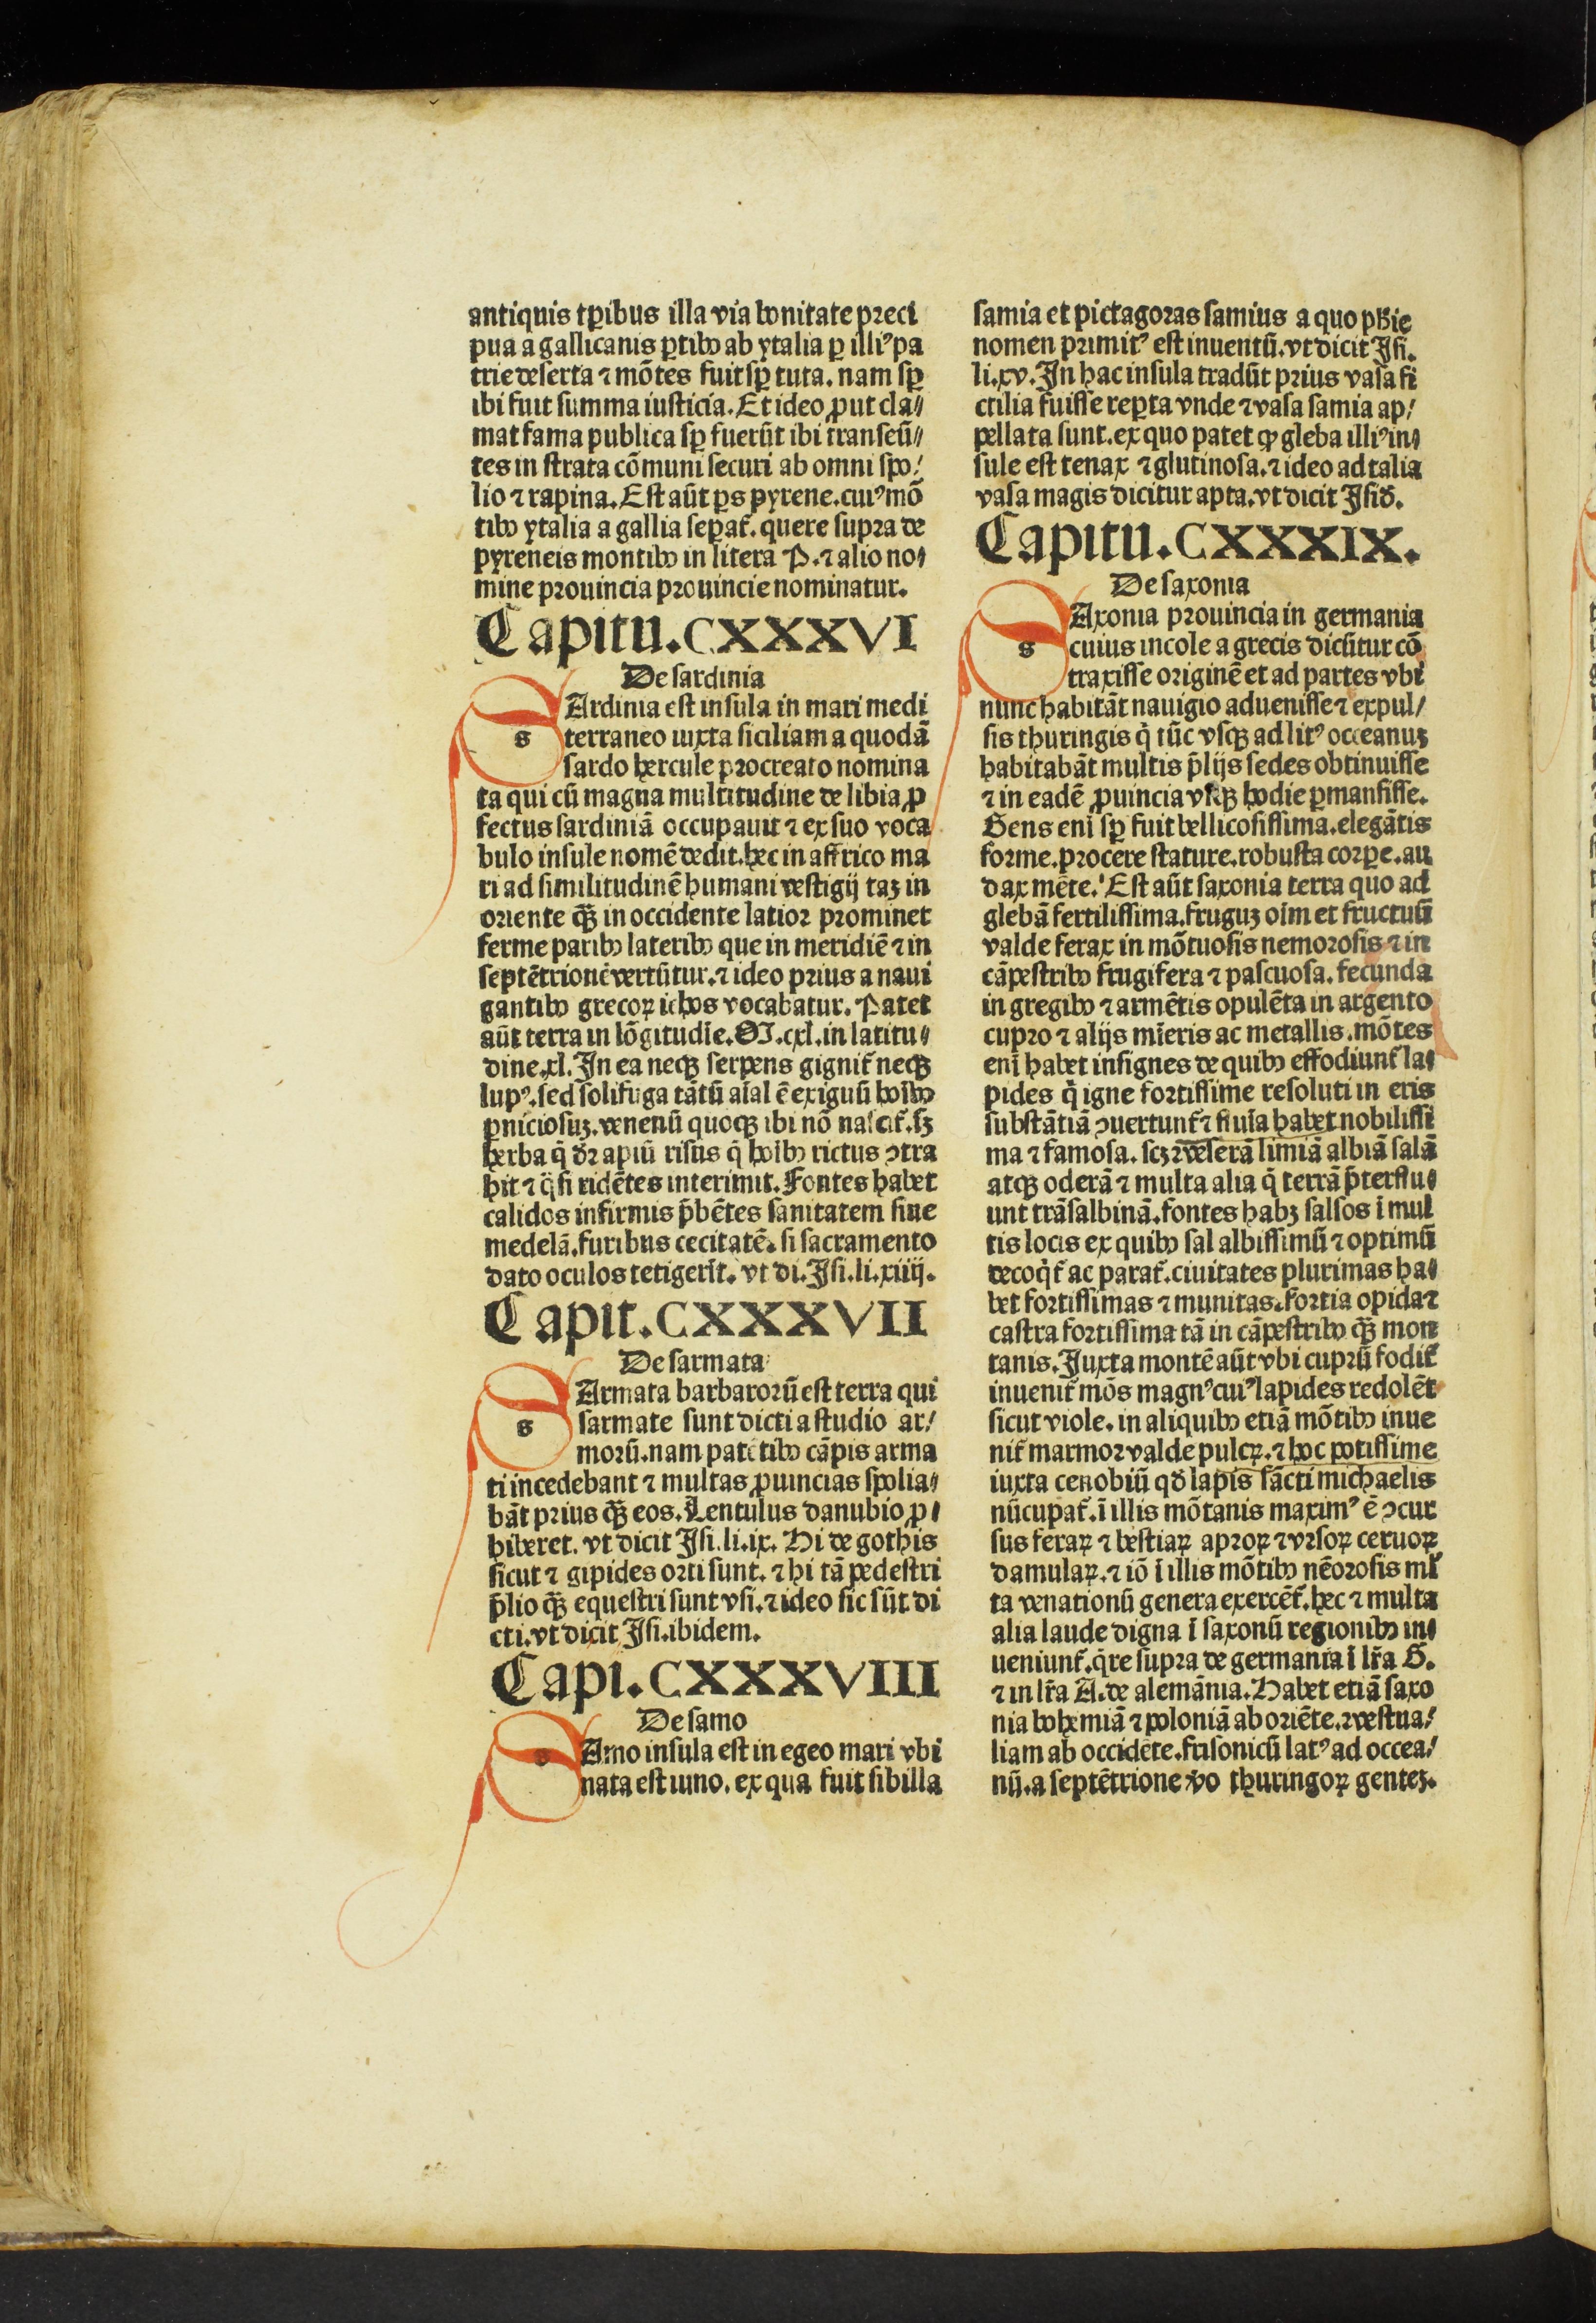 antiquis tꝑibus illa via bonitate preci
pua a gallicanis ꝑtibꝰ ab ytalia ꝑ illiꝰ pa
trie deserta ⁊ mōtes fuit sꝑ tuta. nam sꝑ
ibi fuit summa iusticia. Et ideo ꝓut cla⸗
mat fama publica sꝑ fuerūt ibi transeū⸗
tes in strata cōmuni securi ab omni spo⸗
lio ⁊ rapina. Est aūt ꝑs pyrene. cuiꝰ mō
tibꝰ ytalia a gallia seꝑat̄. quere supra de
pyreneis montibꝰ in litera P. ⁊ alio no⸗
mine prouincia prouincie nominatur.
Capitu. CXXXVI
De sardinia
sArdinia est insula in mari medi
terraneo iuxta siciliam a quodā
sardo hercule procreato nomina
ta qui cū magna multitudine de libia ꝓ
fectus sardiniā occupauit ⁊ ex suo voca
bulo insule nomē dedit. hec in affrico ma
ri ad similitudinē humani vestigij taꝫ in
oriente qꝫ̄ in occidente latior prominet
ferme paribꝰ lateribꝰ que in meridiē ⁊ in
septētrionē vertūtur. ⁊ ideo prius a naui
gantibꝰ grecoꝝ ichos vocabatur. Patet
aūt terra in lōgitudīe. M. cxl. in latitu⸗
dine. xl. In ea neqꝫ serpens gignit̄ neqꝫ
lupꝰ. sed solifuga tātū aīal ē exiguū hoībꝰ
ꝑniciosuꝫ. venenū quoqꝫ ibi nō nascit̄. sꝫ
herba q̄ dr apiū risus q̄ hoībꝰ rictus ꝯtra
hit ⁊ q̄si ridētes interimit. Fontes habet
calidos infirmis p̄bētes sanitatem siue
medelā. furibus cecitatē. si sacramento
dato oculos tetigerīt. vt di. Isi. li. xiiij.
Capit. CXXXVII
De sarmata
sArmata barbarorū est terra qui
sarmate sunt dicti a studio ar⸗
morū. nam patētibꝰ cāpis arma
ti incedebant ⁊ multas ꝓuincias spolia⸗
bāt prius qꝫ̄ eos. Lentulus danubio ꝓ⸗
hiberet. vt dicit Isi. li. ix. Hi de gothis
sicut ⁊ gipides orti sunt. ⁊ hi tā pedestri
p̄lio qꝫ̄ equestri sunt vsi. ⁊ ideo sic sūt di
cti. vt dicit Isi. ibidem.
Capi. CXXXVIII
De samo
sAmo insula est in egeo mari vbi
nata est iuno. ex qua fuit sibilla
samia et pictagoras samius a quo ph̄ie
nomen primitꝰ est inuentū. vt dicit Isi.
li. xv. In hac insula tradūt prius vasa fi
ctilia fuisse reꝑta vnde ⁊ vasa samia ap⸗
pellata sunt. ex quo patet ꝙ gleba illiꝰ in⸗
sule est tenax ⁊ glutinosa. ⁊ ideo ad talia
vasa magis dicitur apta. vt dicit Isid̄.
Capitu. CXXXIX.
De saxonia
sAxonia prouincia in germania
cuius incole a grecis dicūtur cō
traxisse originē et ad partes vbi
nunc habitāt nauigio aduenisse ⁊ expul⸗
sis thuringis q̄ tūc vsqꝫ ad litꝰ occeanuꝫ
habitabāt multis p̄lijs sedes obtinuisse
⁊ in eadē ꝓuincia vsqꝫ hodie ꝑmansisse.
Gens enī sꝑ fuit bellicosissima. elegātis
forme. procere stature. robusta corꝑe. au
dax mēte. Est aūt saxonia terra quo ad
glebā fertilissima. fruguꝫ oīm et fructuū
valde ferax in mōtuosis nemorosis ⁊ in
cāpestribꝰ frugifera ⁊ pascuosa. fecunda
in gregibꝰ ⁊ armētis opulēta in argento
cupro ⁊ alijs mīeris ac metallis. mōtes
enī habet insignes de quibꝰ effodiunt̄ la⸗
pides q̄ igne fortissime resoluti in eris
substātiā ꝯuertunt̄ ⁊ fiuīa habet nobilissi
ma ⁊ famosa. scꝫ ⁊ veserā limiā albiā salā
atqꝫ oderā ⁊ multa alia q̄ terrā p̄terflu⸗
unt trāsalbinā. fontes habꝫ salsos ī mul
tis locis ex quibꝰ sal albissimū ⁊ optimū
decoq̄t̄ ac parat̄. ciuitates plurimas ha⸗
bet fortissimas ⁊ munitas. fortia opida ⁊
castra fortissima tā in cāpestribꝰ qꝫ̄ mon
tanis. Iuxta montē aūt vbi cuprū fodit̄
inuenit̄ mōs magnꝰ cuiꝰ lapides redolēt
sicut viole. in aliquibꝰ etiā mōtibꝰ inue
nit̄ marmor valde pulcꝝ. ⁊ hoc potissime
iuxta cenobiū qd̄ lapis sācti michaelis
nūcupat̄. ī illis mōtanis maximꝰ ē ꝯcur
sus feraꝝ ⁊ bestiaꝝ aproꝝ ⁊ vrsoꝝ ceruoꝝ
damulaꝝ. ⁊ iō ī illis mōtibꝰ nēorosis ml̄
ta venationū genera exercēt̄. hec ⁊ multa
alia laude digna ī saxonū regionibꝰ in⸗
ueniunt̄. q̄re supra de germania ī lr̄a G.
⁊ in lr̄a A. de alemānia. Habet etiā saxo
nia bohemiā ⁊ poloniā ab oriēte. ⁊ vestua⸗
liam ab occidēte. frisonicū latꝰ ad occea⸗
nū. a septētrione v̄o thuringoꝝ genteꝫ.